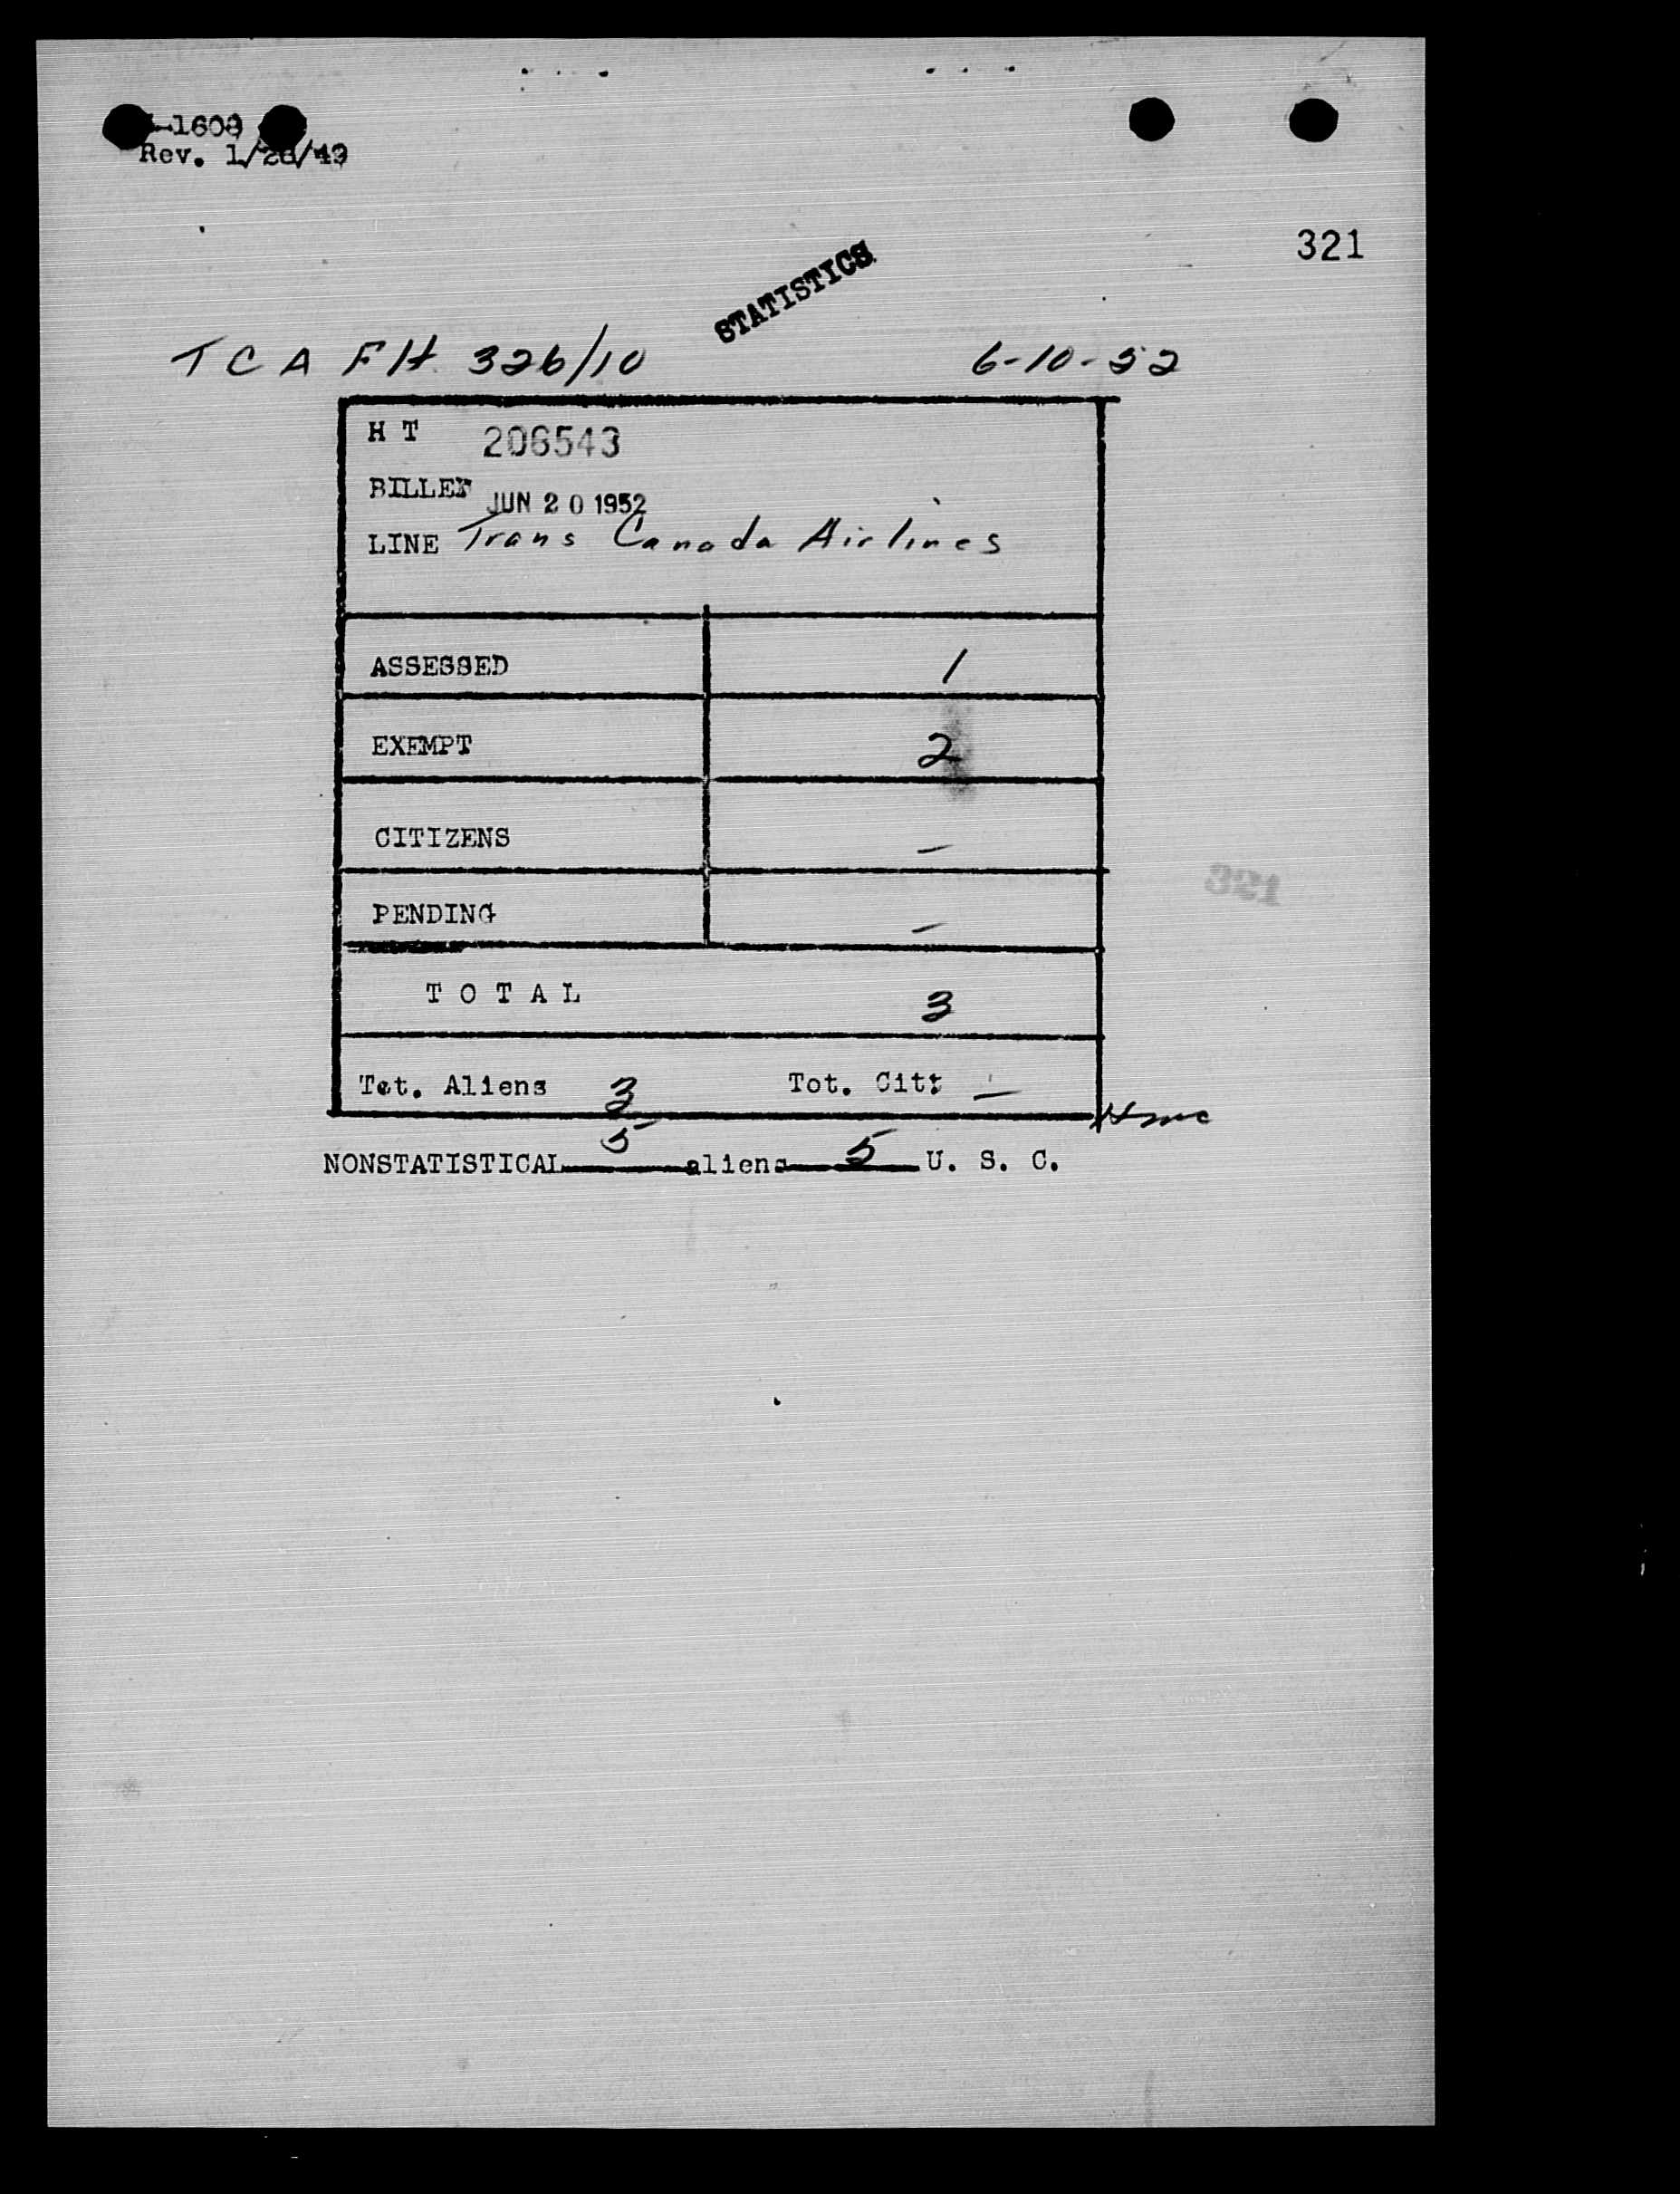 -1608
Rev. 1/28/49
321
STATISTICS
TCA Flt 326/10 6-10-52
H T 206543
BILLED JUN 20 1952
LINE Trans Canada Airlines
ASSESSED 1
EXEMPT 2
CITIZENS —
PENDING —
321
T O T A L 3
Tot. Aliens 3 Tot. Cit: —
NONSTATISTICAL 5 aliens 5 U. S. C.